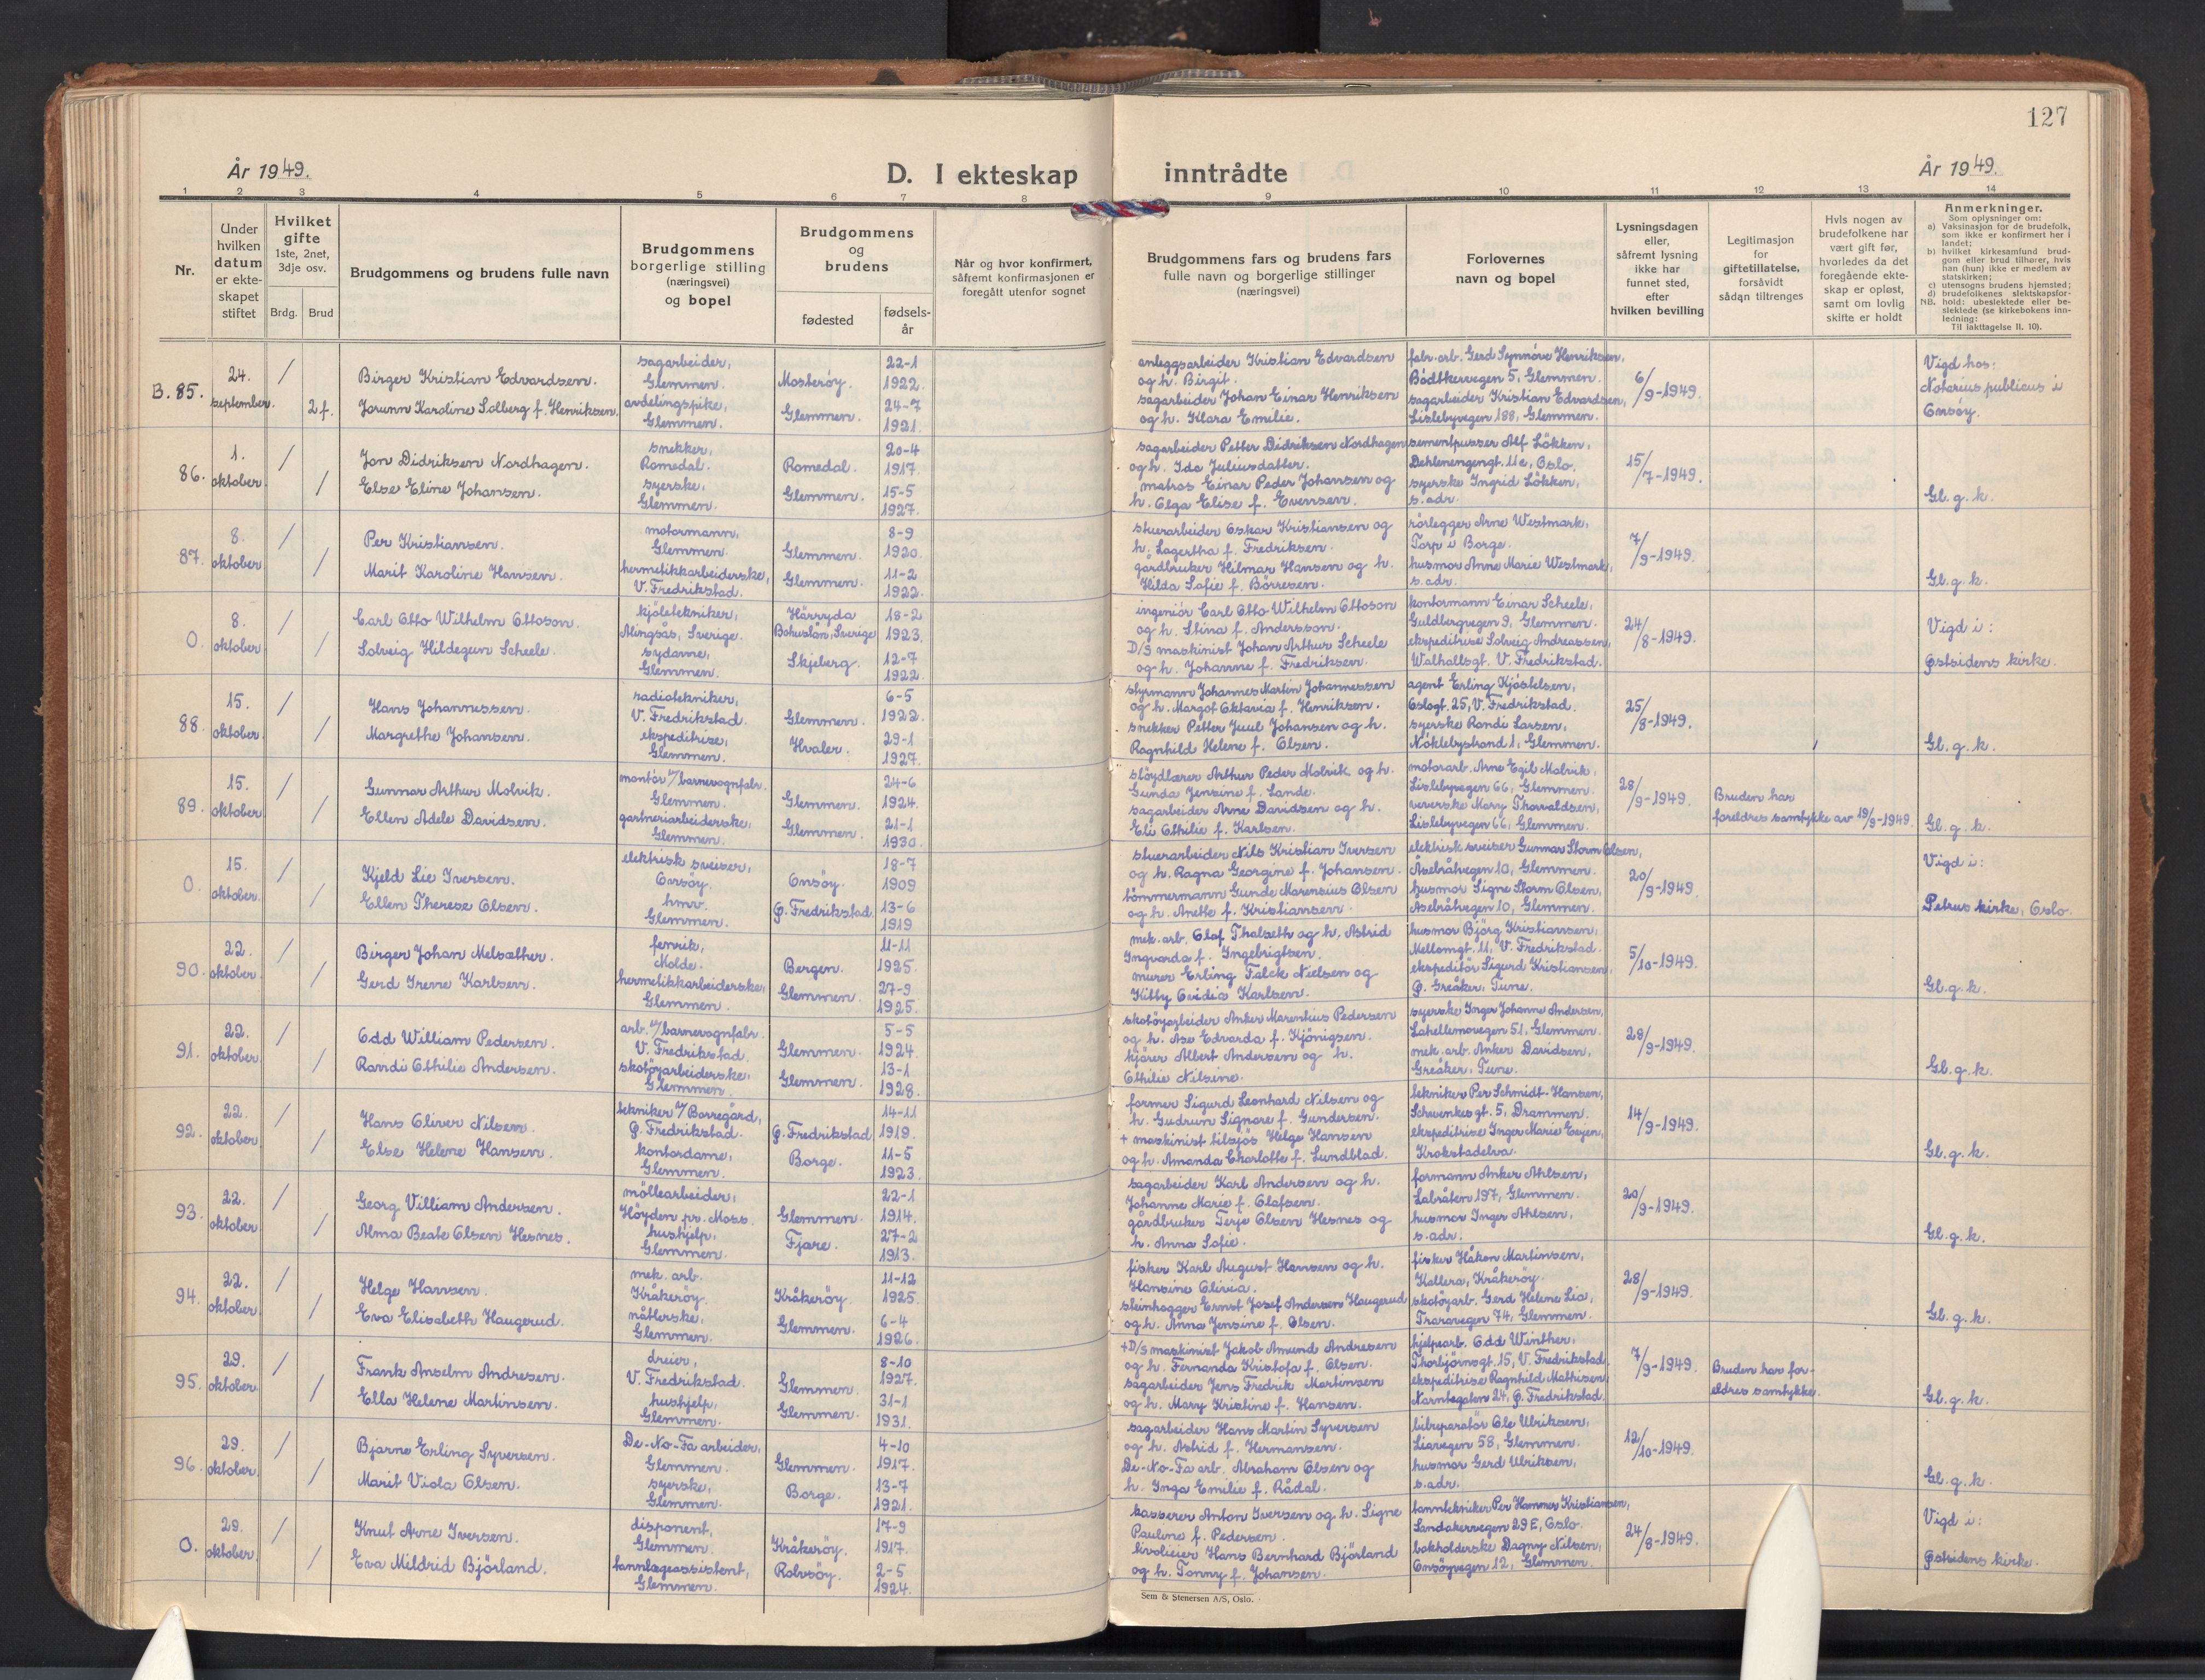 127
År 1949.
D. I ekteskap inntrådte
År 1949.
1 2 3 4 5 6 7 8 9 10 11 12 13 14
Nr.
Under hvilken datum er ekteskapet stiftet
Hvilket gifte
1ste, 2net, 3dje osv.
Brdg. Brud
Brudgommens og brudens fulle navn
Brudgommens borgerlige stilling (næringsvei) og bopel
Brudgommens og brudens
fødested
fødselsår
Når og hvor konfirmert, såfremt konfirmasjonen er foregått utenfor sognet
Brudgommens fars og brudens fars fulle navn og borgerlige stillinger (næringsvei)
Forlovernes navn og bopel
Lysningsdagen eller, såfremt lysning ikke har funnet sted, efter hvilken bevilling
Legitimasjon for giftetillatelse, forsåvidt sådan tiltrenges
Hvis nogen av brudefolkene har vært gift før, hvorledes da det foregående ekteskap er opløst, samt om lovlig skifte er holdt
Anmerkninger.
Som oplysninger om:
a) Vaksinasjon for de brudefolk, som ikke er konfirmert her i landet;
b) hvilket kirkesamfund brudgom eller brud tilhører, hvis han (hun) ikke er medlem av statskirken;
c) utensogns brudens hjemsted;
d) brudefolkenes slektskapsforhold: ubeslektede eller beslektede (se kirkebokens innledning:
NB. Til iakttagelse II, 10).
B. 85. 24. september. / 2 f.
Birger Kristian Edvardsen.
Jorunn Karoline Solberg f. Henriksen.
sagarbeider, Glemmen.
avdelingspike, Glemmen.
Mosterøy. 22-1 1922.
Glemmen. 24-7 1921.
anleggsarbeider Kristian Edvardsen
og h. Birgit.
sagarbeider Johan Einar Henriksen
og h. Klara Emilie.
fabr.arb. Gerd Synnöve Henriksen,
Bödtkervegen 5, Glemmen.
sagarbeider Kristian Edvardsen,
Lislebyvegen 188, Glemmen.
6/9-1949.
Vigd hos:
Notarius publicus i
Onsöy.
86. 1. oktober. / /
Jon Didriksen Nordhagen.
Else Eline Johansen.
snekker, Romedal.
syerske, Glemmen.
Romedal. 20-4 1917.
Glemmen. 15-5 1927.
sagarbeider Petter Didriksen Nordhagen
og h. Ida Juliusdatter.
matros Einar Peder Johansen og
h. Olga Elise f. Evensen.
sementpusser Alf Lökken,
Dehlenengengt. 11c, Oslo.
syerske Ingrid Lökken,
s. adr.
15/7-1949.
Gl. g. k.
87. 8. oktober / /
Per Kristiansen.
Marit Karoline Hansen.
motormann, Glemmen.
hermetikkarbeiderske, V. Fredrikstad.
Glemmen. 8-9 1920.
Glemmen. 11-2 1922.
stuerarbeider Oskar Kristiansen og
h. Lagertha f. Fredriksen.
gårdbruker Hilmar Hansen og h.
Hilda Sofie f. Börresen.
rörlegger Arne Westmark,
Torp i Borge.
husmor Anne Marie Westmark,
s. adr.
7/9-1949.
Gl. g. k.
0. 8. oktober / /
Carl Otto Wilhelm Ottoson.
Solveig Hildegun Scheele.
kjöletekniker, Alingsås, Sverige.
sydame, Glemmen.
Härryda Bohuslän, Sverige 18-2 1923.
Skjeberg. 12-7 1922.
ingeniör Carl Otto Wilhelm Ottoson
og h. Stina f. Andersson.
D/S maskinist Johan Arthur Scheele
og h. Johanne f. Fredriksen.
kontormann Einar Scheele,
Guldbergvegen 9, Glemmen.
ekspeditrise Solveig Andreassen,
Walhallsgt. V. Fredrikstad.
24/8-1949.
Vigd i:
Østsidens kirke.
88. 15. oktober. / /
Hans Johannessen.
Margrethe Johansen.
radiotekniker, V. Fredrikstad.
ekspeditrise, Glemmen.
Glemmen. 6-5 1922.
Hvaler. 29-1 1927.
styrmann Johannes Martin Johannessen
og h. Margot Oktavia f. Henriksen.
snekker Petter Juul Johansen og h.
Ragnhild Helene f. Olsen.
agent Erling Kjöstelsen,
Oslogt. 25, V. Fredrikstad.
syerske Randi Larsen,
Nöklebystrand 1, Glemmen.
25/8-1949.
Gl. g. k.
89. 15. oktober / /
Gunnar Arthur Molvik.
Ellen Adele Davidsen.
montör v/barnevognfabr. Glemmen.
gartneriarbeiderske, Glemmen.
Glemmen. 24-6 1924.
Glemmen. 21-1 1930.
slöydlærer Arthur Peder Molvik og h.
Gunda Jensine f. Lande.
sagarbeider Arne Davidsen og h.
Eli Othilie f. Karlsen.
motorarb. Arne Egil Molvik,
Lislebyvegen 66, Glemmen.
veverske Mary Thorvaldsen,
Lislebyvegen 66, Glemmen.
28/9-1949.
Bruden har
foreldres samtykke av 19/9-1949.
Gl. g. k.
0. 15. oktober. / /
Kjeld Lie Iversen.
Ellen Therese Olsen.
elektrisk sveiser, Onsöy.
hmv. Glemmen.
Onsöy. 18-7 1909
Ø. Fredrikstad 13-6 1919
stuerarbeider Nils Kristian Iversen
og h. Ragna Georgine f. Johansen.
tömmermann Gunde Marensius Olsen
og h. Anette f. Kristiansen.
elektrisk sveiser Gunnar Storm Olsen,
Åsebråtvegen 10, Glemmen.
husmor Signe Storm Olsen,
Åsebråtvegen 10, Glemmen.
20/9-1949.
Vigd i:
Petrus kirke, Oslo.
90. 22. oktober. / /
Birger Johan Melsæther.
Gerd Irene Karlsen.
fenrik, Molde.
hermetikkarbeiderske, Glemmen.
Bergen. 11-11 1925.
Glemmen. 27-9 1925.
mek. arb. Olaf Thalseth og h. Astrid
Ingvarda f. Ingebrigtsen.
murer Erling Falck Nielsen og
Kitty Ovidia Karlsen.
husmor Björg Kristiansen,
Mellomgt. 11, V. Fredrikstad.
ekspeditör Sigurd Kristiansen,
Ø. Greåker, Tune.
5/10-1949.
Gl. g. k.
91. 22. oktober / /
Odd William Pedersen.
Randi Othilie Andersen.
arb. v/barnevognfabr. V. Fredrikstad.
skotöyarbeiderske, Glemmen.
Glemmen. 5-5 1924.
Glemmen. 13-1 1928.
skotöyarbeider Anker Marentius Pedersen
og h. Åse Edvarda f. Kjönigsen.
kjörer Albert Andersen og h.
Othilie Nilsine.
syerske Inger Johanne Andersen,
Lahellemovegen 51, Glemmen.
mek. arb. Anker Davidsen,
Greåker, Tune.
28/9-1949.
Gl. g. k.
92. 22. oktober / /
Hans Oliver Nilsen.
Else Helene Hansen.
tekniker v/Borregård, Ø. Fredrikstad.
kontordame, Glemmen.
Ø. Fredrikstad 14-11 1919.
Borge. 11-5 1923.
former Sigurd Leonhard Nilsen og
h. Gudrun Signore f. Gundersen.
+ maskinist tilsjös Helge Hansen
og h. Amanda Charlotte f. Lundblad.
tekniker Per Schmidt-Hansen,
Schwenkes gt. 5, Drammen.
ekspeditrise Inger Marie Evjen,
Krokstadelva.
14/9-1949.
Gl. g. k.
93. 22. oktober / /
Georg Villiam Andersen.
Alma Beate Olsen Hesnes.
möllearbeider, Höyden pr. Moss.
hushjelp, Glemmen.
Glemmen. 22-1 1914.
Fjære. 27-2 1913.
sagarbeider Karl Andersen og h.
Johanne Marie f. Olafsen.
gårdbruker Terje Olsen Hesnes og
h. Anna Sofie.
formann Anker Ahlsen,
Labråten 197, Glemmen.
husmor Inger Ahlsen,
s. adr.
20/9-1949.
Gl. g. k.
94. 22. oktober. / /
Helge Hansen.
Eva Elisabeth Haugerud.
mek. arb. Kråkeröy.
nåtlerske, Glemmen.
Kråkeröy. 11-12 1925.
Glemmen. 6-4 1926.
fisker Karl August Hansen og h.
Hansine Olivia.
steinhogger Ernst Josef Andersen Haugerud
og h. Anna Jensine f. Olsen.
fisker Håkon Martinsen,
Kallera, Kråkeröy.
skotöyarb. Gerd Helene Lia,
Traravegen 74, Glemmen.
28/9-1949.
Gl. g. k.
95. 29. oktober / /
Frank Anselm Andresen.
Ella Helene Martinsen.
dreier, V. Fredrikstad.
hushjelp, Glemmen.
Glemmen. 8-10 1927.
Glemmen. 31-1 1931.
+ D/S maskinist Jakob Amund Andresen
og h. Fernanda Kristofa f. Olsen.
sagarbeider Jens Fredrik Martinsen
og h. Mary Kristine f. Hansen.
hjelpearb. Odd Winther,
Thorbjörnsgt. 15, V. Fredrikstad.
ekspeditrise Ragnhild Mathisen,
Narntegaten 24, Ø. Fredrikstad.
7/9-1949.
Bruden har foreldres samtykke.
Gl. g. k.
96. 29. oktober. / /
Bjarne Erling Syversen.
Marit Viola Olsen.
De-No-Fa arbeider, Glemmen.
syerske, Glemmen.
Glemmen. 4-10 1917.
Borge. 13-7 1921.
sagarbeider Hans Martin Syversen
og h. Astrid f. Hermansen.
De-No-Fa arb. Abraham Olsen og
h. Inga Emilie f. Rådal.
bilreparatör Ole Ulriksen,
Liavegen 58, Glemmen.
husmor Gerd Ulriksen,
s. adr.
12/10-1949.
Gl. g. k.
0. 29. oktober. / /
Knut Arne Iversen.
Eva Mildrid Björland.
disponent, Glemmen.
tannlegeassistent, Glemmen.
Kråkeröy. 17-9 1917.
Rolvsöy. 2-5 1924.
kasserer Anton Iversen og h. Signe
Pauline f. Pedersen.
livoliëier Hans Bernhard Björland
og h. Tonny f. Johansen.
tanntekniker Per Hammer Kristiansen,
Sandakervegen 29 E, Oslo.
bokholderske Dagny Nilsen,
Onsöyvegen 12, Glemmen.
24/8-1949.
Vigd i:
Østsidens kirke.
Sem & Stenersen A/S, Oslo.